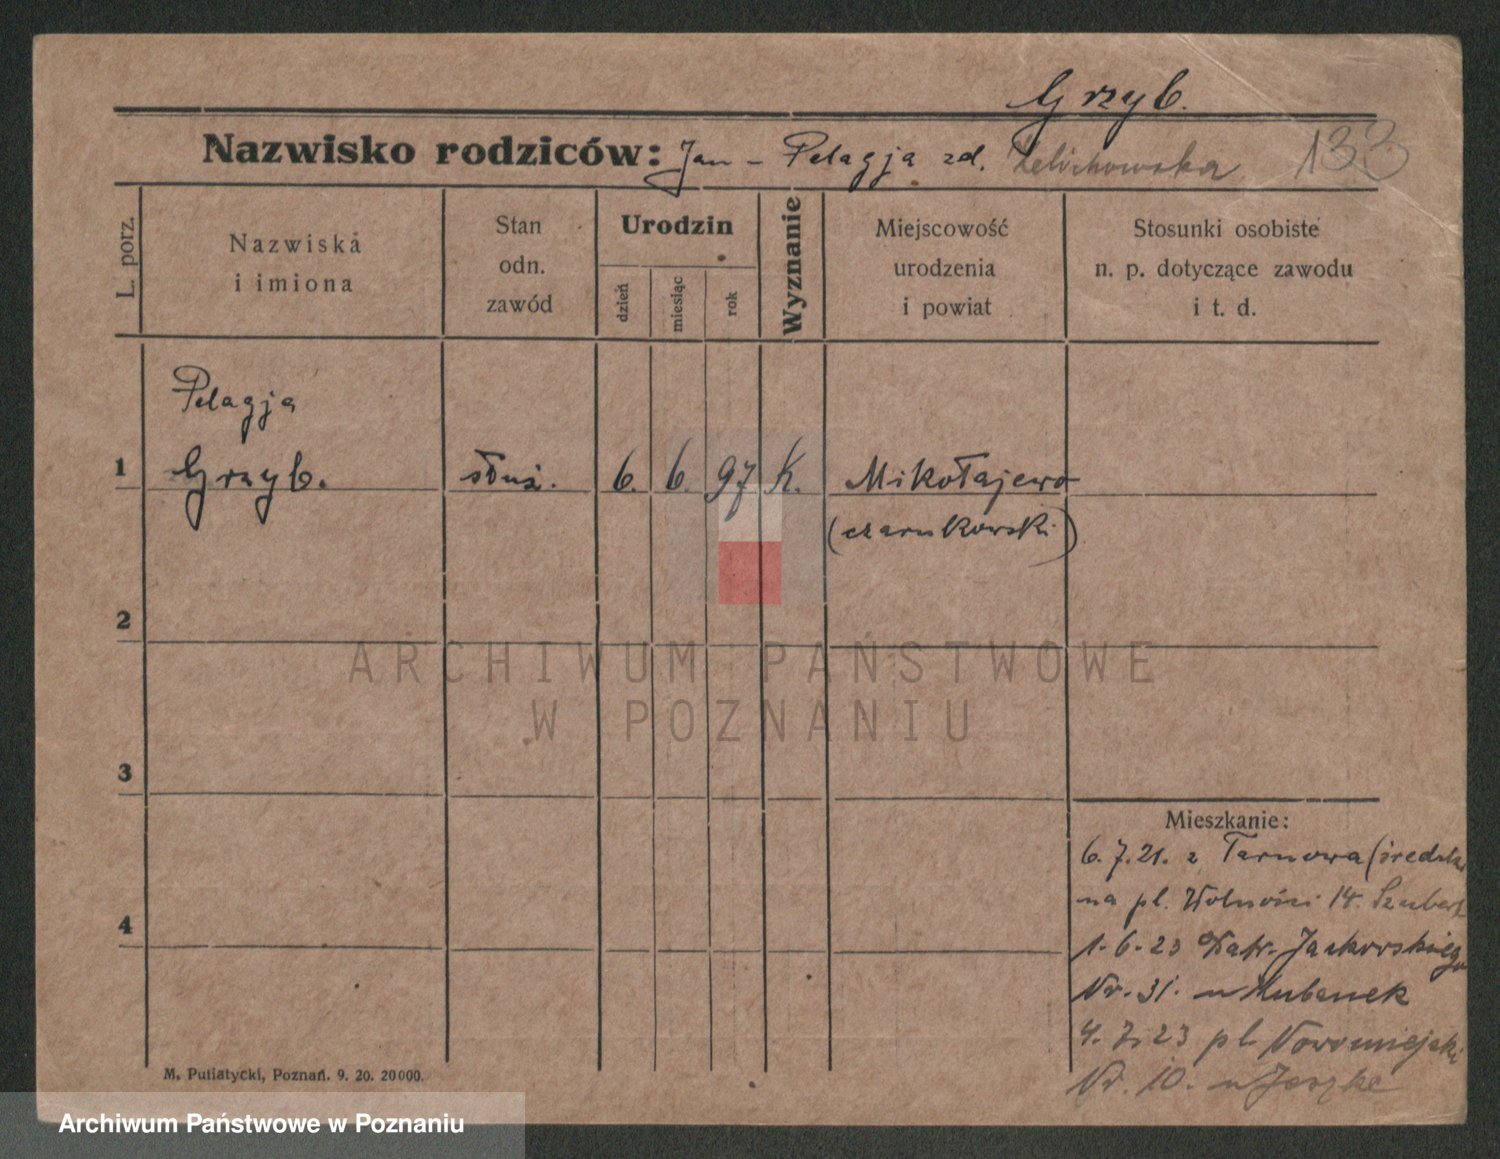 Grzyb.
Nazwisko rodziców: Jan - Pelagja zd. Zelichowska 133
L. porz.
Nazwiska
i imiona
Stan
odn.
zawód
Urodzin
dzień
miesiąc
rok
Wyznanie
Miejscowość
urodzenia
i powiat
Stosunki osobiste
n. p. dotyczące zawodu
i t. d.
Pelagja
1 Grzyb. służ. 6. 6. 97 K. Mikołajewo
(czarnkowski)
2
ARCHIWUM PAŃSTWOWE
W POZNANIU
3
Mieszkanie:
6.7.21. z Tarnowa (średzka
na pl. Wolności 14.
4
1.6.23 Jackowskiego
Nr. 31. u Kubanek
4.7.23 pl. Nowomiejski
Nr. 10. u Jeszke
M. Putiatycki, Poznań. 9. 20. 20000.
Archiwum Państwowe w Poznaniu